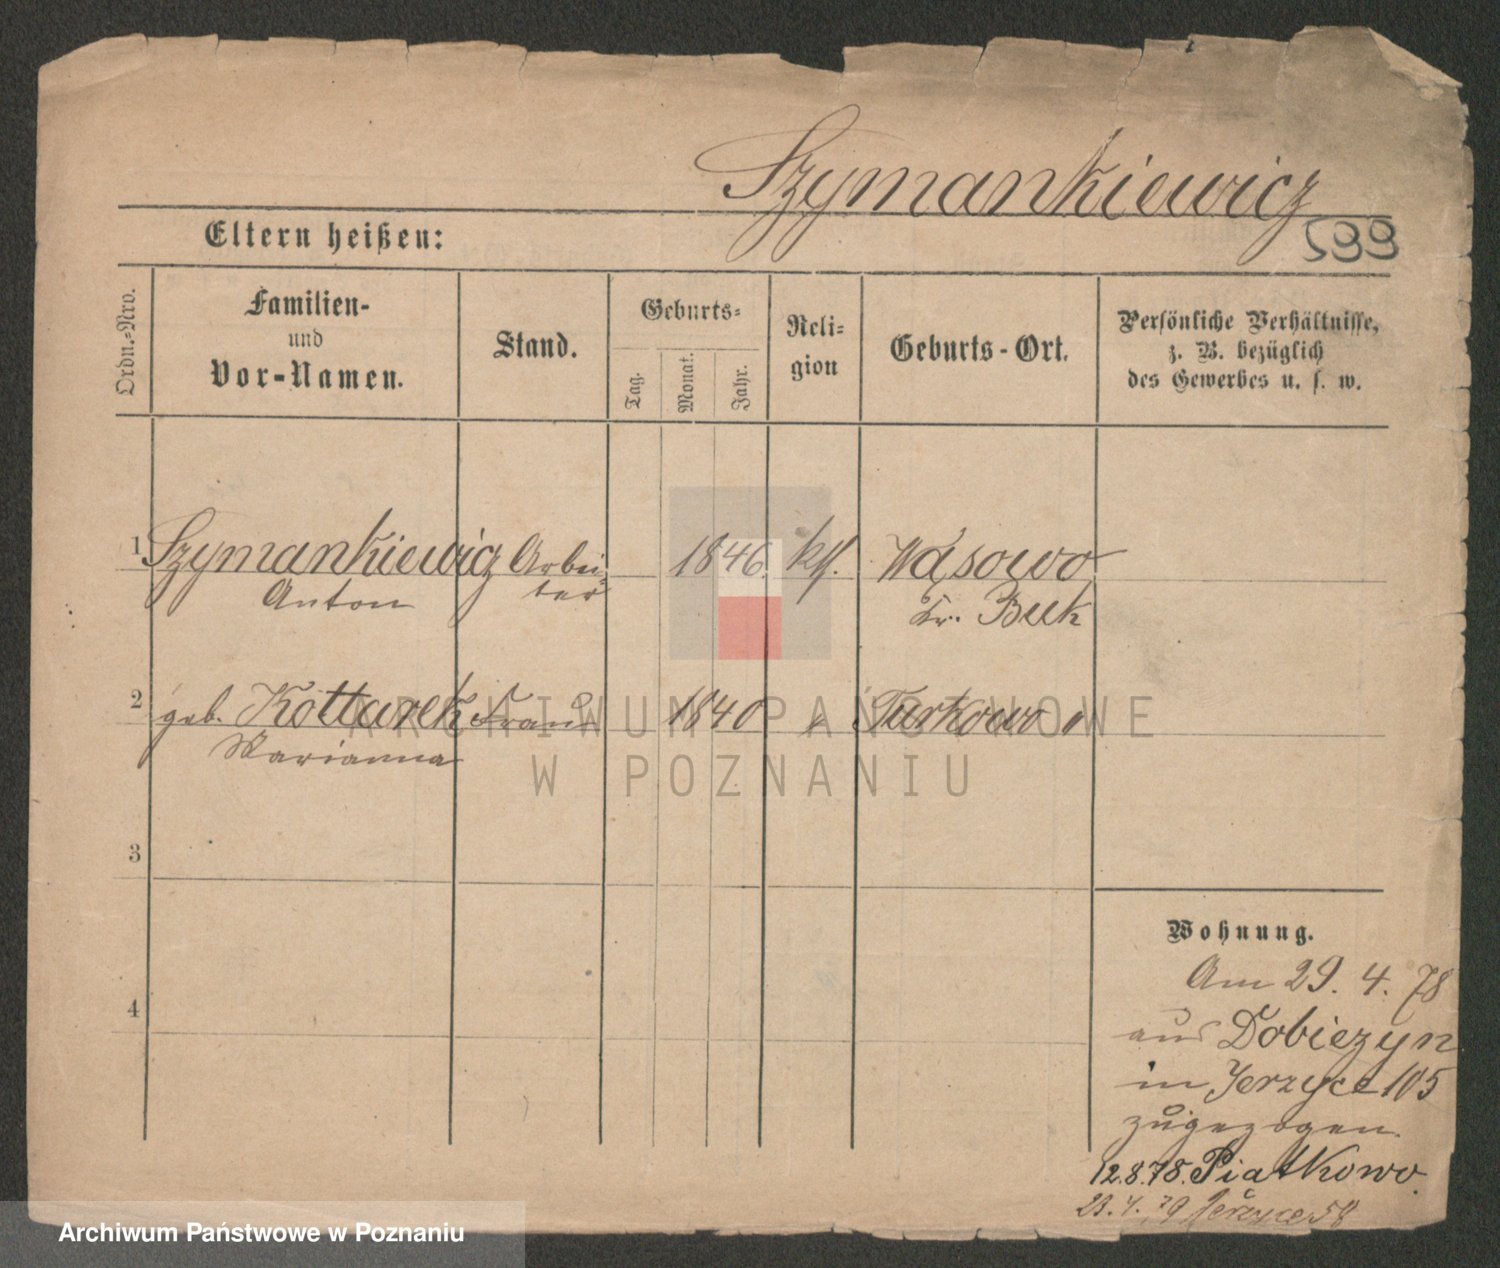 Szymankiewicz
599
Eltern heißen:
Ordn.-Nro.
Familien-
und
Vor-Namen.
Stand.
Geburts-
Tag.
Monat.
Jahr.
Reli-
gion
Geburts-Ort.
Persönliche Verhältnisse,
z. B. bezüglich
des Gewerbes u. s. w.
1 Szymankiewicz Arbei- 1846. kth. Wąsowo
Anton ter Kr. Buk
2 geb. Kottarek Frau 1840 " Turkowo "
Marianna
3
4
Wohnung.
Am 29. 4. 78
aus Dobiezyn
in Jerzyce 105
zugezogen.
12.8.78. Piatkowo.
23. 4. 79 Jerzyce 58
ARCHIWUM PAŃSTWOWE
W POZNANIU
Archiwum Państwowe w Poznaniu